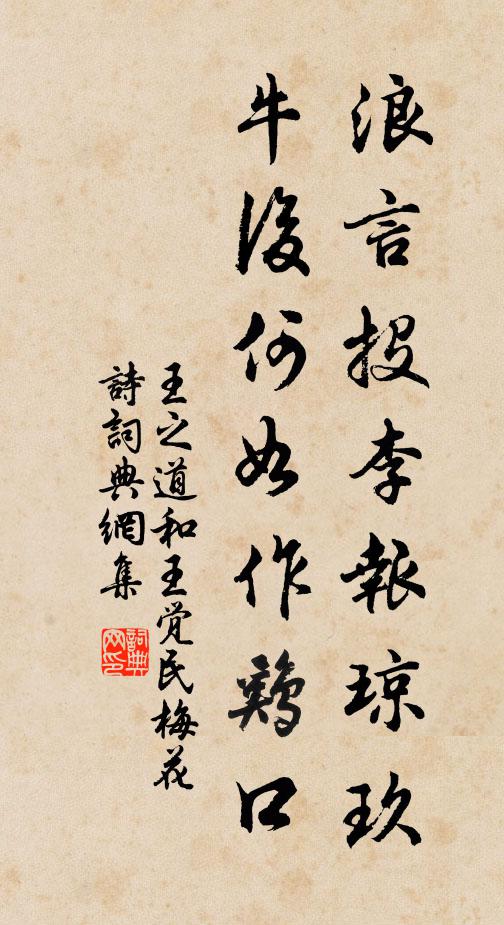 浪言投李報琼玖
牛後何如作鷄口
王之道和王觉民梅花
詩詞典網集
詞典網印